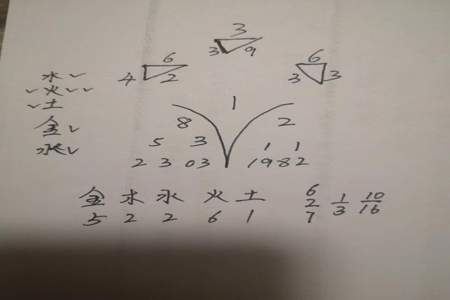 3
3 9
6
4 2
6
3 3
木
火
土
金
水
1
8 2
5 3 1 1
23 03 1982
金 木 水 火 土
5 2 2 6 1
6 2 7
1 3
10 16